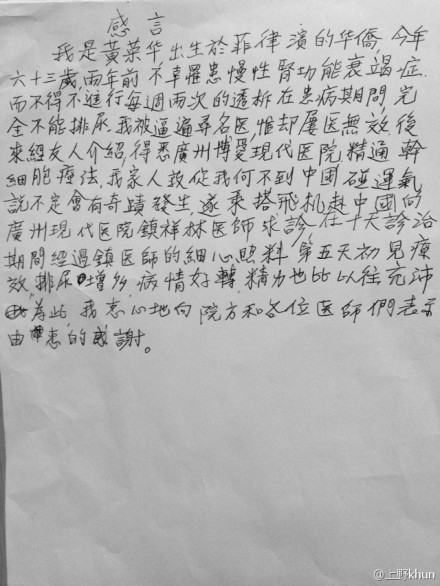 感言
我是黃榮华出生於菲律濱的华僑,今年
六十三歲,兩年前不幸罹患慢性腎功能衰竭症.
而不得不進行每週兩次的透析在患病期間,完
全不能排尿.我被逼遍尋名医,惟却屢医無效後
來經友人介紹,得悉廣州博愛現代医院精通幹
細胞療法,我家人敦促我何不到中国碰運氣
說不定會有奇蹟發生,遂乘搭飛机赴中國的
廣州現代医院鎮祥林医師求診在十天診治
期間經過鎮医師的細心照料,第五天初見療
效,排尿增多,病情好轉,精力也比以往充沛
為此,我忠心地向院方和各位医師們表示
由衷的感謝。
@上野khun